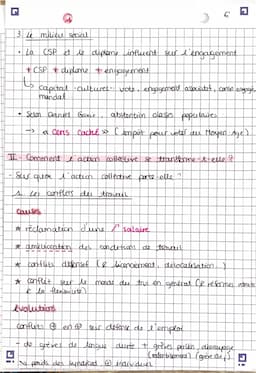 3. Le milieu social
• La CSP et le diplôme influent sur l'engagement
+ CSP + diplôme + engagement
↳ capital culturel : vote, engagement associatif,
mandat
• Selon Daniel Gaxie, abstention classes populaires
→ « Cens caché » (impôt pour voter au Moyen Age)
II - Comment l'action collective se transforme-t-elle ?
- Sur quoi l'action collective porte-elle
1. Les conflits du travail
Causes
* réclamation d'une / salaire
* amélioration des conditions de travail
* conflits défensif ( licenciement, délocalisation )
* conflit sur le monde du trv en général ( réformes
& la flexibilité)
évolutions
conflits en sur défense de l'emploi
- de grèves de longue durée + grèves perlées, débrayage
poids des syndicats individuel